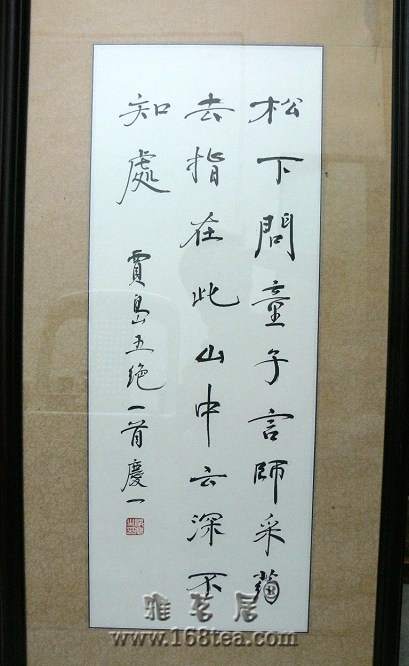 松下問童子言師采葯
去指在此山中云深不
知處 賈島五絶一首慶一
雅茗居
www.168tea.com